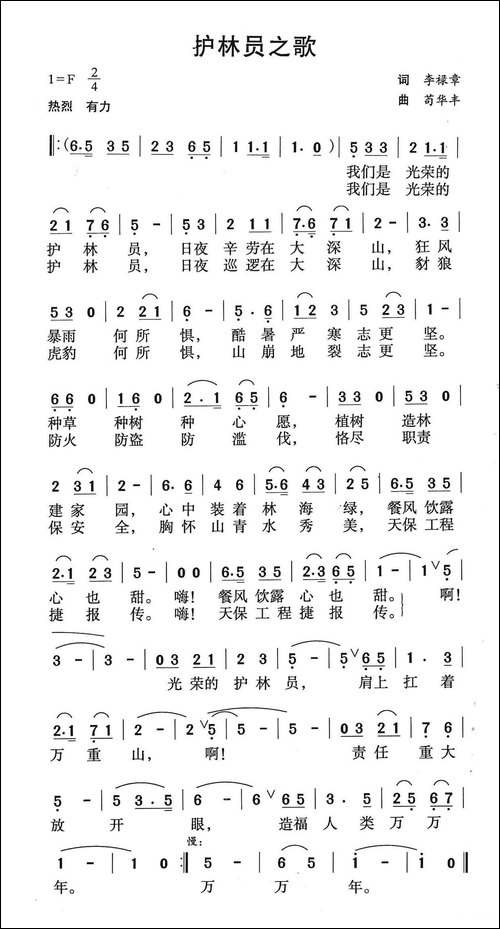 护林员之歌
1=F 2/4
词 李禄章
热烈 有力
曲 苟华丰
‖:(6.5 3 5 | 2 3 6 5 | 1 1 1.1 | 1.0) | 5 3 3 | 2 1.1 |
我们是 光荣的
我们是 光荣的
2 1 7 6 | 5 - | 5 3 | 2 1 1 | 7.6 7 1 | 2 - | 3. 3 |
护 林 员, 日夜 辛 劳在 大 深 山, 狂 风
护 林 员, 日夜 巡 逻在 大 深 山, 豺 狼
5 3 0 | 2 2 1 | 6 - | 5. 6 | 1 2 3 | 5 2 3 | 1 - |
暴雨 何 所 惧, 酷 暑 严 寒 志 更 坚。
虎豹 何 所 惧, 山 崩 地 裂 志 更 坚。
6 6 0 | 1 6 0 | 2. 1 | 6 5 | 6 - | 3 3 0 | 5 3 0 |
种草 种树 种 心 愿, 植树 造林
防火 防盗 防 滥 伐, 恪尽 职责
2 3 1 | 2 - | 6. 6 | 4 6 | 5.6 4 3 | 2 5 | 6.5 3 5 |
建 家 园, 心中 装着 林 海 绿, 餐风 饮露
保 安 全, 胸怀 山青 水 秀 美, 天保 工程
2.1 2 3 | 5 - | 0 0 | 6.5 3 5 | 2.3 6 5 | 1 - | 1 ∨ 5 |
心 也 甜。 嗨! 餐风 饮露 心 也 甜。 啊!
捷 报 传。 嗨! 天保 工程 捷 报 传。
3 - | 3 - | 0 3 2 1 | 2 3 | 5 - | 5 ∨ 6 5 | 1 . 3 |
光荣的 护 林 员, 肩上 扛 着
2.1 7 1 | 2 - | 2 ∨ 5 | 5 - | 5 - | 0 3 2 1 | 7 6 |
万 重 山, 啊! 责任 重 大
5 - | 5 3 . 5 | 6 - | 6 ∨ 6 5 | 3. 5 | 2 5 6 7 |
放 开 眼, 造福 人 类 万 万
慢:
1 - | 1 0 :‖ 5 - | 6 5 | 1 - | 1 0 ‖
年。 万 万 年。